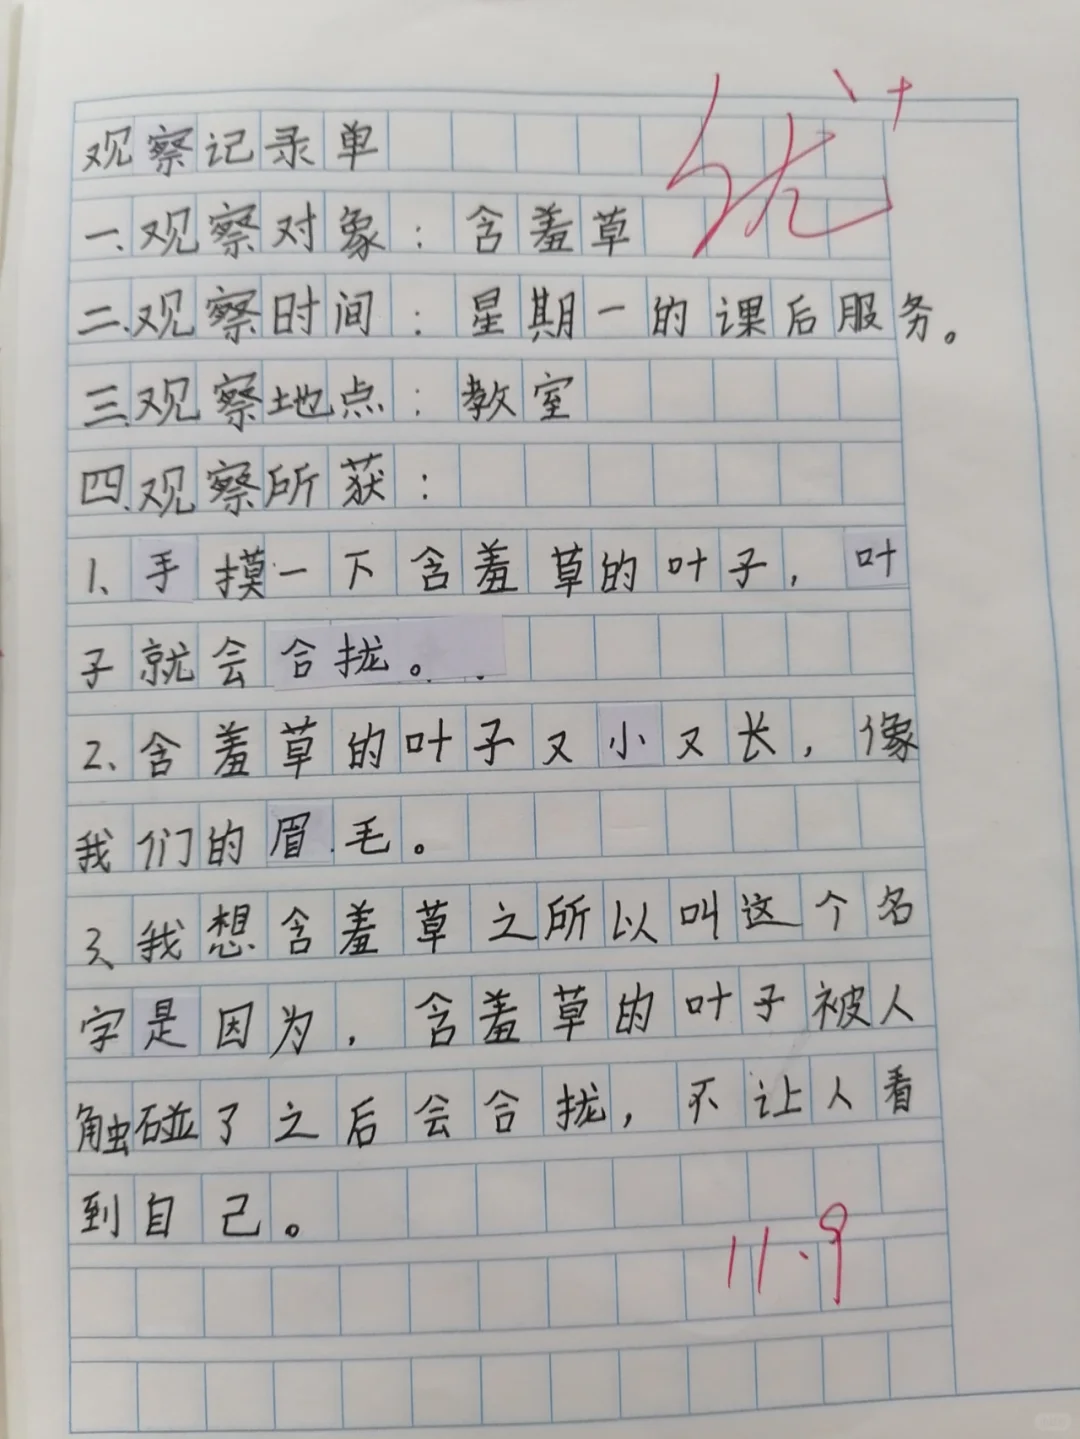 优+
观察记录单
一、观察对象：含羞草
二、观察时间：星期一的课后服务。
三、观察地点：教室
四、观察所获：
1、手摸一下含羞草的叶子，叶
子就会合拢。
2、含羞草的叶子又小又长，像
我们的眉毛。
3、我想含羞草之所以叫这个名
字是因为，含羞草的叶子被人
触碰了之后会合拢，不让人看
到自己。
11.9